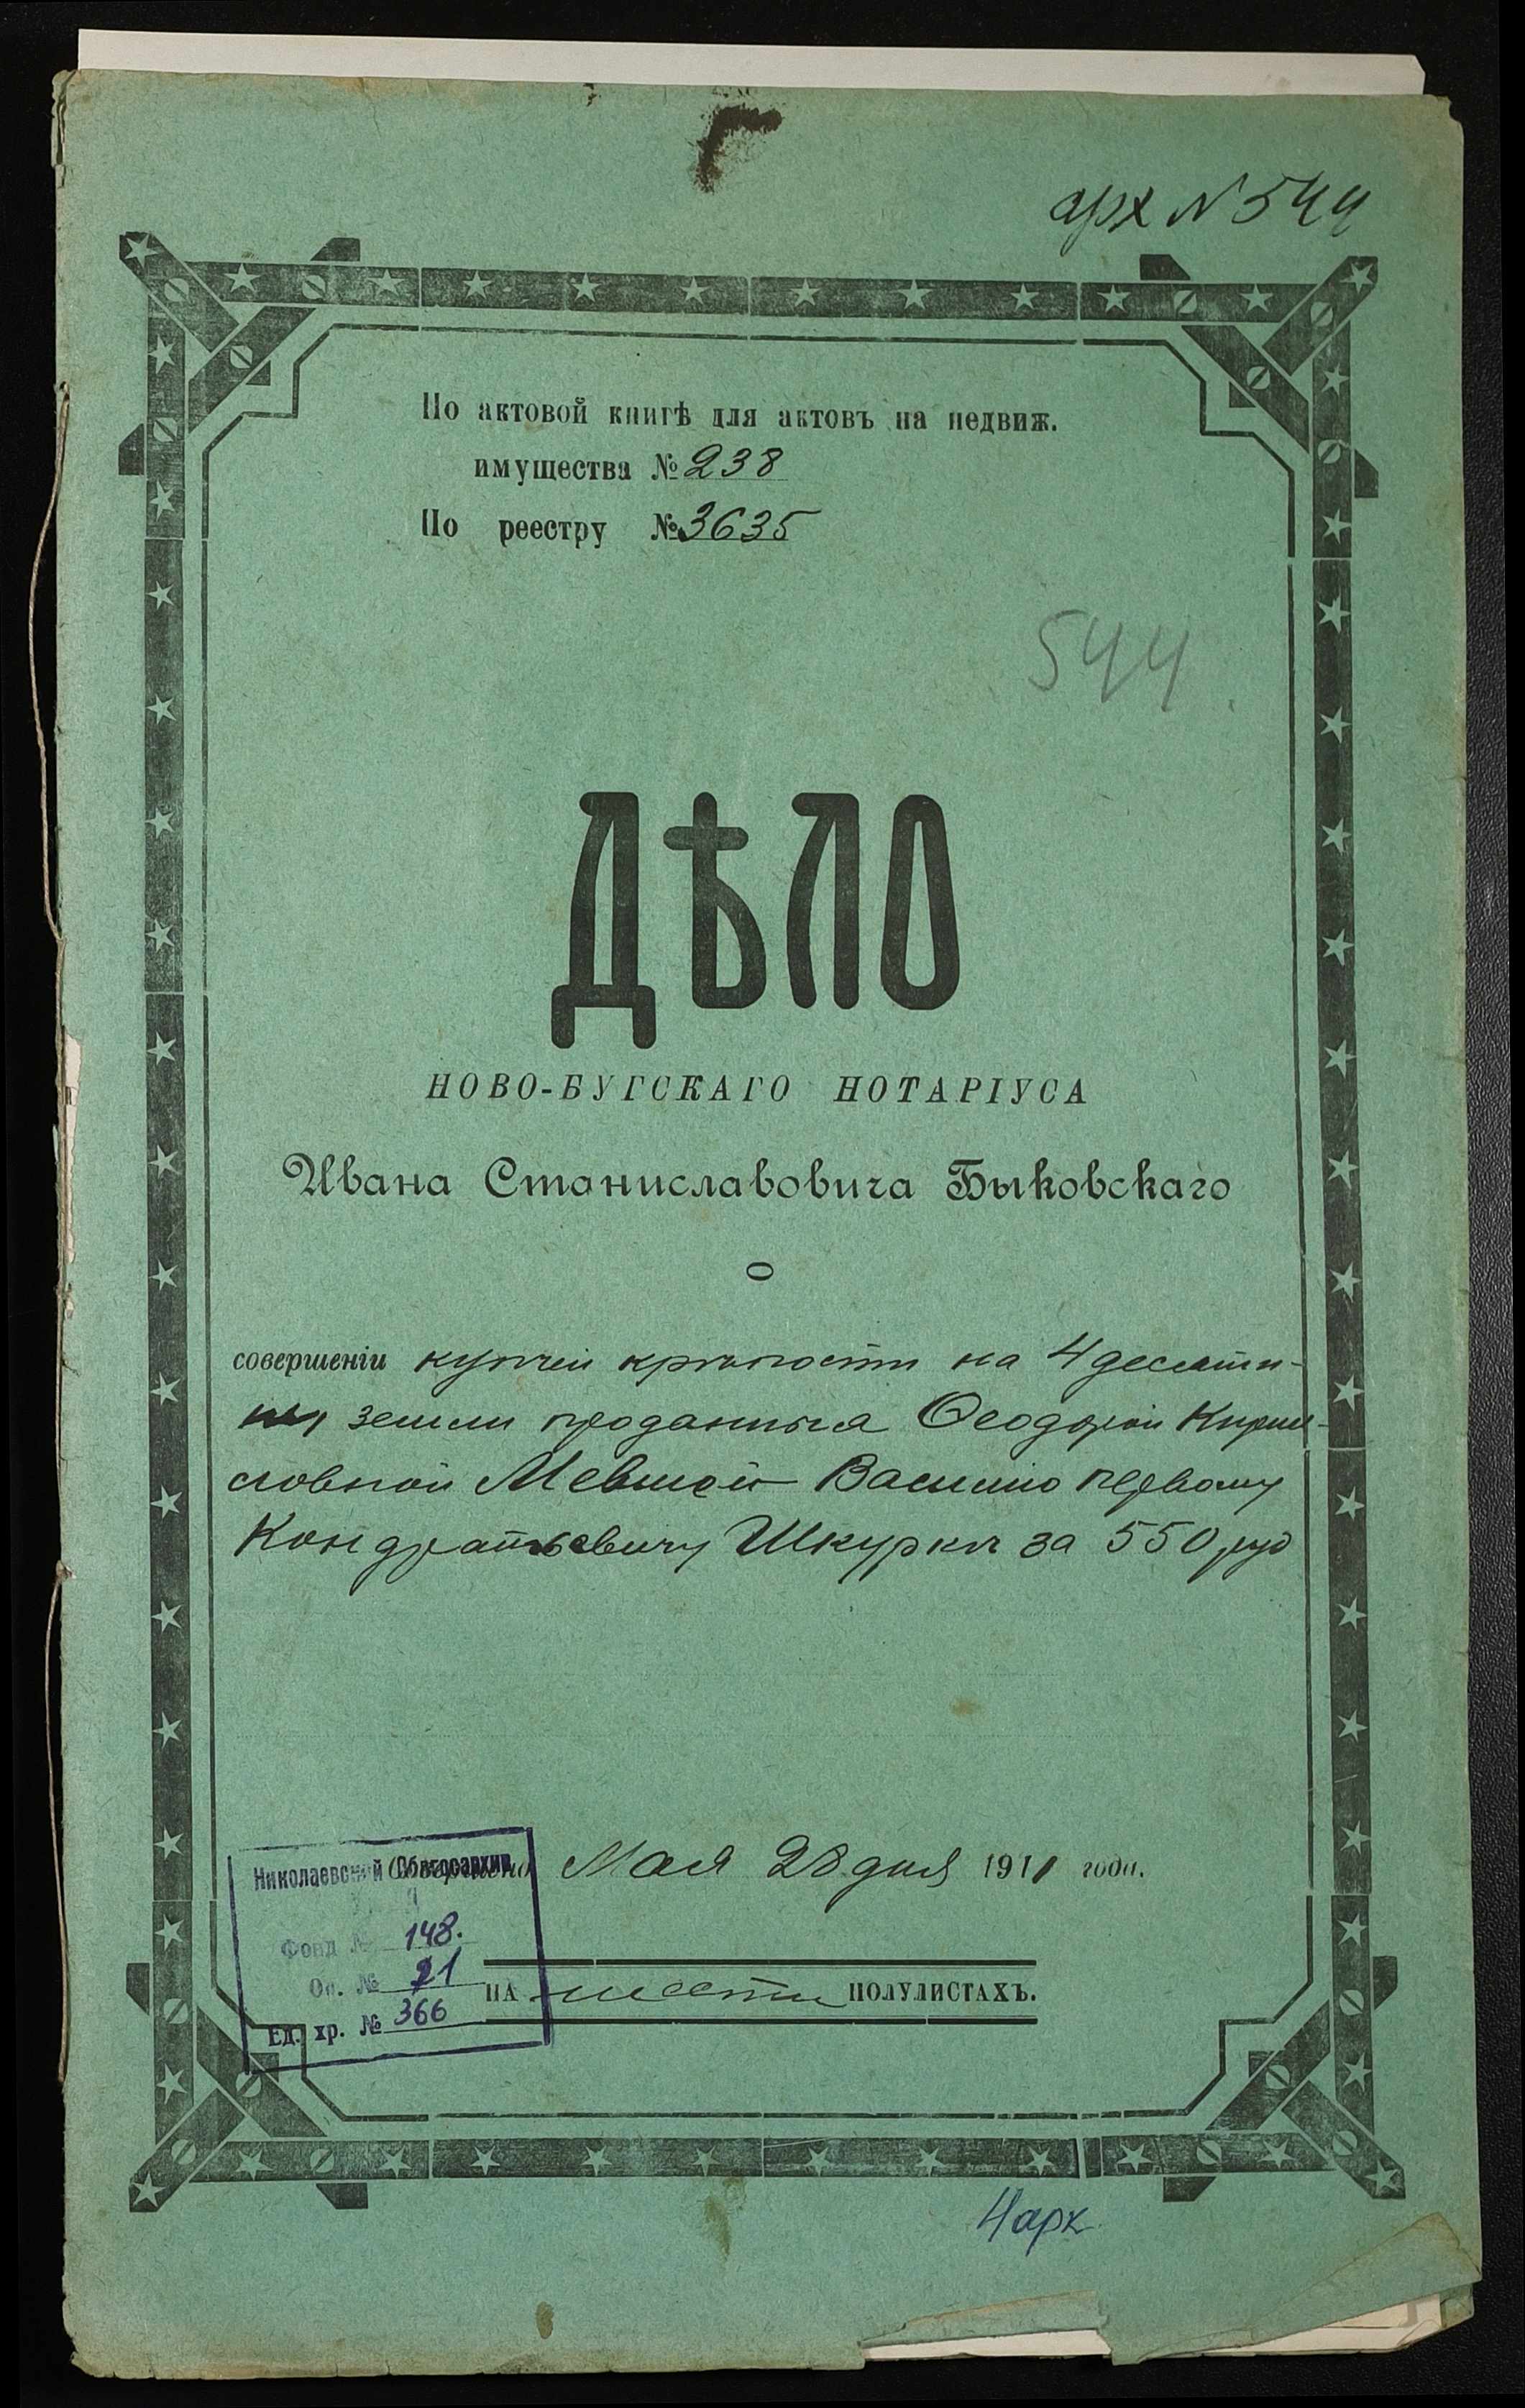 арх N 544
По актовой книгѣ для актовъ на недвиж.
имущества № 238
По реестру № 3635
544
ДѢЛО
НОВО-БУГСКАГО НОТАРІУСА
Ивана Станиславовича Быковскаго
О
совершеніи купчей крѣпости на 4 десяти-
ны земли проданныя Ѳеодорой Кирил-
ловной Мевшей Василію первому
Кондратьевичу Шкуркѣ за 550 руб
Николаевский Облгосархив
Мая 28 дня 1911 года.
Фонд № 148.
Оп. № 21
НА шести ПОЛУЛИСТАХЪ.
Ед. хр. № 366
4 арк